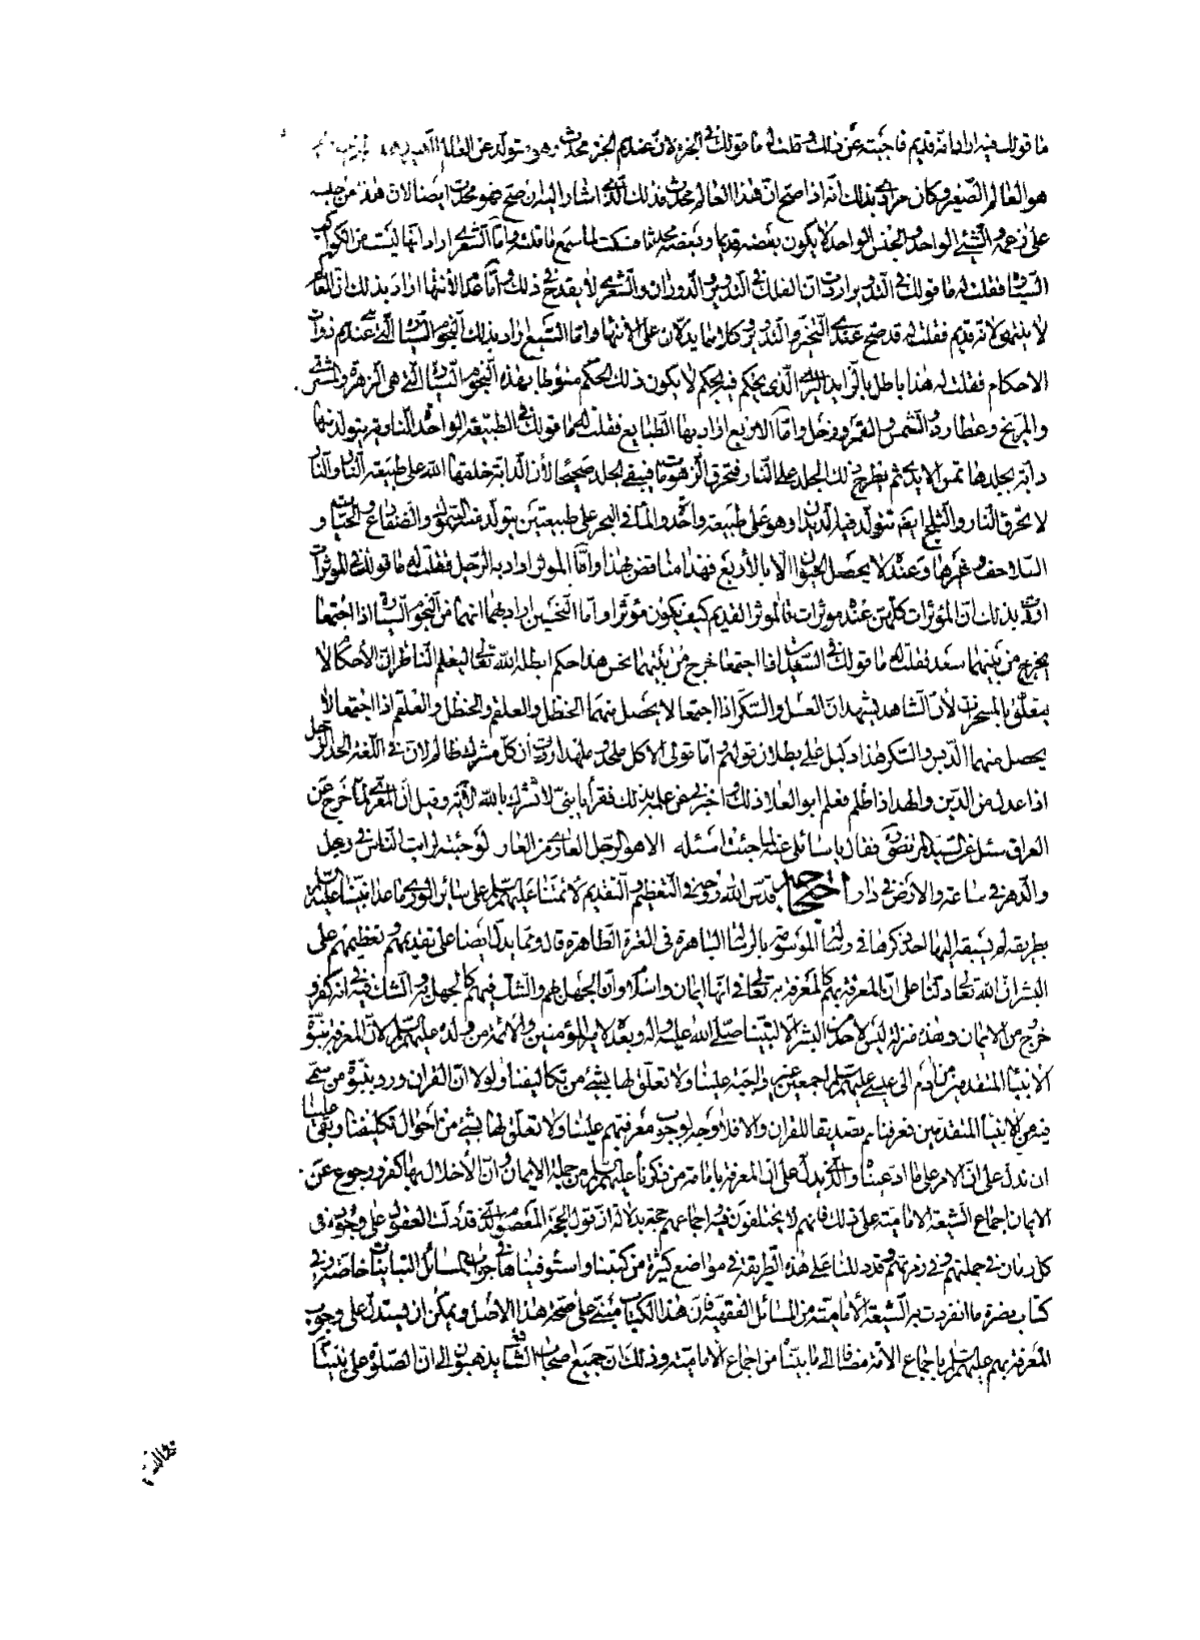 ما قولك فيه اراد انه قديم فاجبته عن ذلك وقلت له ما قولك في الجزء لان عندهم الجزء محدث وهو متولد عن العالم
هو العالم الصغير وكان مرادي بذلك انه اذا صح ان هذا العالم محدث فذلك الذي اشار اليه ان صح فهو محدث ايضا لان هذا من جنسه
على زعمه والشيء الواحد والجنس الواحد لا يكون بعضه قديما وبعضه محدثا فسكت لما سمع ما قلته واما الشعرى اراد انها ليست من الكواكب
السيارة فقلت له ما قولك في التدوير اردت ان الفلك في التدوير والدوران والشعرى لا يقدح في ذلك واما عدم الانتهاء اراد بذلك ان العالم
لا ينتهي لانه قديم فقلت له قد صح عندي التحيز والتدوير وكلاهما يدلان على الانتهاء واما السبع اراد بذلك النجوم السيارة التي عندهم ذوات
الاحكام فقلت له هذا باطل بالزايد البري الذي يحكم فيه بحكم لا يكون ذلك الحكم منوطا بهذه النجوم السيارة التي هي الزهرة والمشتري
والمريخ وعطارد والشمس والقمر وزحل واما الاربع اراد بها الطبايع فقلت له ما قولك في الطبيعة الواحدة النارية يتولد منها
دابة بجلدها تمس الايدي ثم يطرح ذلك الجلد على النار فتحرق الزهومات فيبقى الجلد صحيحا لان الدابة خلقها الله على طبيعة النار والنار
لا تحرق النار والثلج ايضا تتولد فيه الديدان وهو على طبيعة واحدة والماء في البحر على طبيعتين يتولد منه السموك والضفادع والحيات و
السلاحف وغيرها وعنده لا يحصل الحيوان الا بالاربع فهذا مناقض بهذا واما المؤثر اراد به الزحل فقلت له ما قولك في المؤثرات
اردت بذلك ان المؤثرات كلهن عنده مؤثرات فالمؤثر القديم كيف يكون مؤثرا واما النحسين اراد بهما انهما من النجوم السيارة اذا اجتمعا
يخرج من بينهما سعد فقلت له ما قولك في السعدين اذا اجتمعا خرج من بينهما نحس هذا حكم ابطله الله تعالى ليعلم الناظر ان الاحكام لا
يتعلق بالمسخرات لان الشاهد يشهد ان العسل والسكر اذا اجتمعا لا يحصل منهما الحنظل والعلقم والحنظل والعلقم اذا اجتمعا لا
يحصل منهما الدبس والسكر هذا دليل على بطلان قولهم واما قولي الا كل ملحد ملهد اردت ان كل مشرك ظالم لان في اللغة الحد الرجل
اذا عدل عن الدين والهد اذا ظلم فعلم ابو العلا ذلك واخبرني عن علمه بذلك فقرأ يا بني لا تشرك بالله الآية وقيل ان المعري لما خرج عن
العراق سئل عن السيد المرتضى فقال يا سائلي عنه لما جئت اسئله الا هو الرجل العاري من العار لو جئته لرايت الناس في رجل
والدهر في ساعة والارض في دار احتج قدس الله روحه في التعظيم والتقديم لائمتنا عليهم السلم على سائر الورى ما عدا نبينا عليه السلم
بطريقة لم يسبقه اليها احد ذكرها في رسالته الموسومة بالرسالة الباهرة في العترة الطاهرة قال ومما يدل ايضا على تقديمهم وتعظيمهم على
البشر ان الله تعالى دلنا على ان المعرفة بهم كالمعرفة به تعالى في انها ايمان واسلام وان الجهل بهم والشك فيهم كالجهل به والشك فيه في انه كفر و
خروج من الايمان وهذه منزلة ليس لاحد من البشر الا لنبينا صلى الله عليه وآله وبعده لامير المؤمنين والائمة من ولده عليهم السلم لان المعرفة بنبوة
الانبياء المتقدمين من آدم الى عيسى عليهم السلم اجمعين غير واجبة علينا ولا تعلق لها بشيء من تكاليفنا ولولا ان القران ورد بنبوة من سمي
فيه من الانبياء المتقدمين فعرفناهم تصديقا للقران والا فلا وجه لوجوب معرفتهم علينا ولا تعلق لها بشيء من احوال تكليفنا وبقي علينا
ان ندل على ان الامر على ما ادعيناه والذي يدل على ان المعرفة بامامة من ذكرناه عليهم السلم من جملة الايمان وان الاخلال بها كفر ورجوع عن
الايمان اجماع الشيعة الامامية على ذلك فانهم لا يختلفون فيه واجماعهم حجة بدلالة ان قول الحجة المعصوم الذي قد دلت العقول على وجوده في
كل زمان في جملتهم وفي زمرتهم وقد دللنا على هذه الطريقة في مواضع كثيرة من كتبنا واستوفيناها في جواب المسائل التبانيات خاصة وفي
كتاب نصرة ما انفردت به الشيعة الامامية من المسائل الفقهية فان هذا الكتاب مبني على صحة هذا الاصل ويمكن ان يستدل على وجوب
المعرفة بهم عليهم السلم باجماع الامة مضافا الى ما بيناه من اجماع الامامية وذلك ان جميع اصحاب الشافعي يذهبون الى ان الصلوة على نبينا